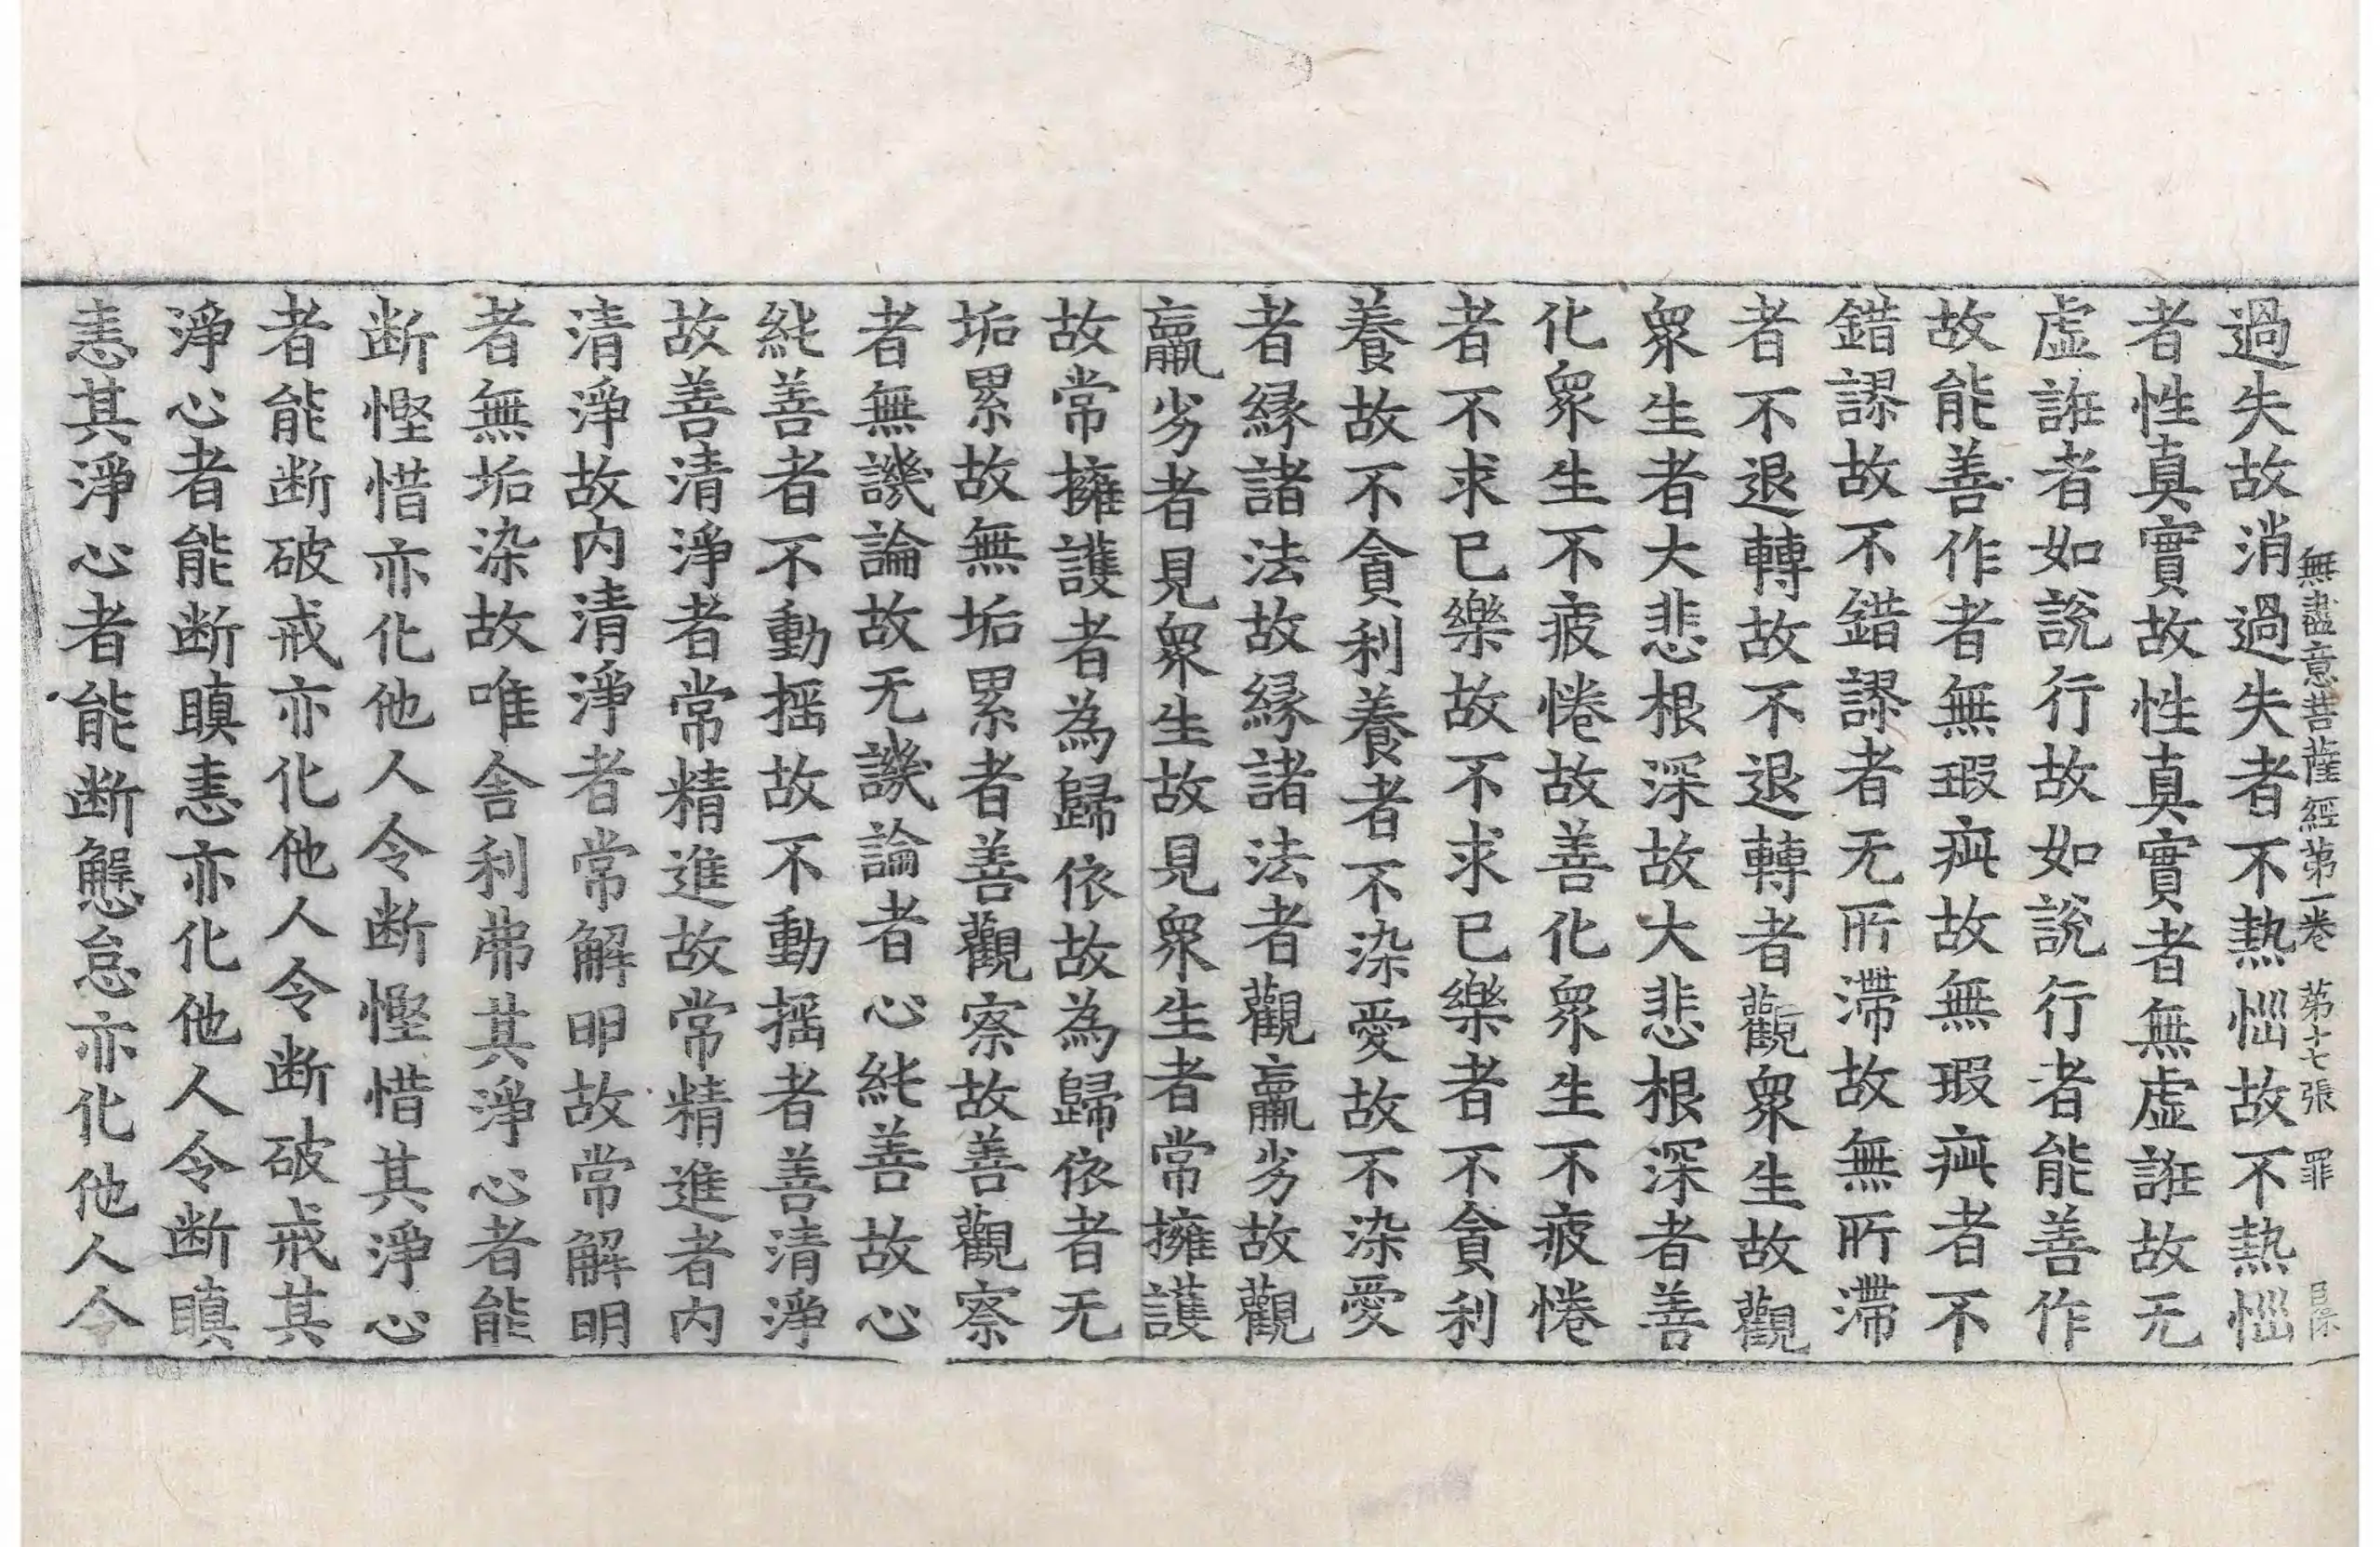 無盡意菩薩經第一卷 第十七張 罪
過失故消過失者不熱惱故不熱惱
者性真實故性真實者無虛誑故无
虛誑者如說行故如說行者能善作
故能善作者無瑕疵故無瑕疵者不
錯謬故不錯謬者无所滯故無所滯
者不退轉故不退轉者觀眾生故觀
眾生者大悲根深故大悲根深者善
化眾生不疲惓故善化眾生不疲惓
者不求已樂故不求已樂者不貪利
養故不貪利養者不染愛故不染愛
者緣諸法故緣諸法者觀羸劣故觀
羸劣者見眾生故見眾生者常擁護
故常擁護者為歸依故為歸依者无
垢累故無垢累者善觀察故善觀察
者無譏論故无譏論者心純善故心
純善者不動搖故不動搖者善清淨
故善清淨者常精進故常精進者內
清淨故內清淨者常解明故常解明
者無垢染故唯舍利弗其淨心者能
断慳惜亦化他人令断慳惜其淨心
者能断破戒亦化他人令断破戒其
淨心者能断瞋恚亦化他人令断瞋
恚其淨心者能断懈怠亦化他人令